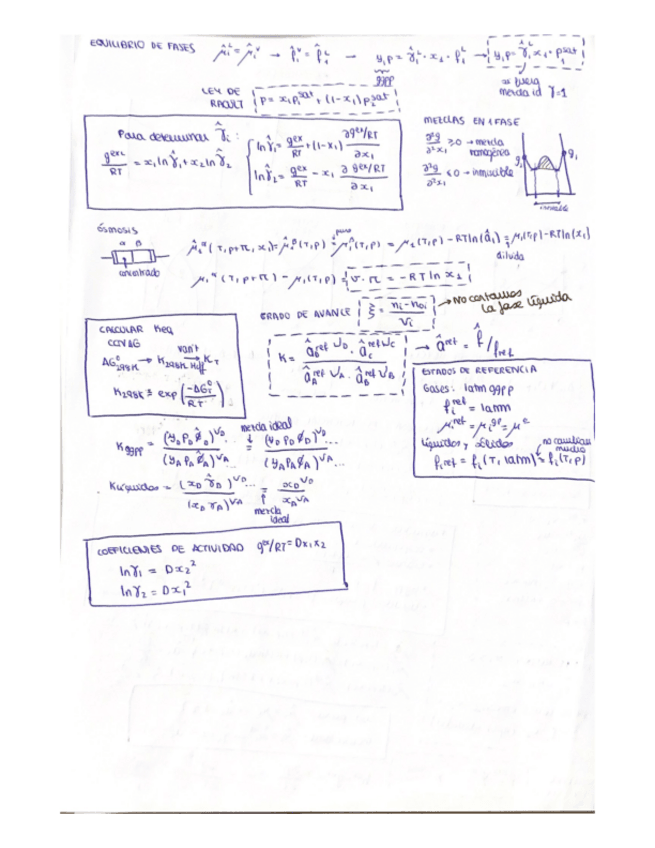 EQUILIBRIO DE FASES  μ̂ᵢᴸ = μ̂ᵢⱽ → f̂ᵢⱽ = f̂₁ᴸ → y₁p = γ̂₁ᴸ · x₁ · f₁ᴸ → y₁p = γ̂₁ᴸ x₁ · p₁ˢᵃᵗ
ggpp
mezcla id γ=1
LEY DE RAOULT  p = x₁p₁ˢᵃᵗ + (1-x₁)p₂ˢᵃᵗ
Para determinar γ̂ᵢ :
gᵉˣ/RT = x₁ ln γ̂₁ + x₂ ln γ̂₂
ln γ̂₁ = gᵉˣ/RT + (1-x₁) ∂gᵉˣ/RT / ∂x₁
ln γ̂₂ = gᵉˣ/RT - x₁ ∂gᵉˣ/RT / ∂x₁
MEZCLAS EN 1 FASE
∂²g/∂²x₁ ≥ 0 → mezcla homogénea
∂²g/∂²x₁ < 0 → inmiscible
g₂ g₁
ósmosis
α β
concentrado
pura
diluida
μ₁ᵅ (T, p+π) - μ₁(T,p) = v · π = -RT ln x₁
GRADO DE AVANCE  ξ = nᵢ - n₀ᵢ / νᵢ → No contamos la fase líquida
CALCULAR Keq
CON ΔG
ΔG⁰₂₉₈K → K₂₉₈K → Van't Hoff → K_T
K₂₉₈K = exp(-ΔG⁰_T / RT)
K = â_D^ref ν_D · â_C^ref ν_C / â_A^ref ν_A · â_B^ref ν_B → â^ref = f̂/f_ref
ESTADOS DE REFERENCIA
Gases: 1atm ggpp
fᵢʳᵉᶠ = 1atm
μᵢʳᵉᶠ = μᵢᵍᵖ = μ⁰
Líquidos y sólidos
no cambian mucho
fᵢʳᵉᶠ = fᵢ(T, 1atm) ≈ fᵢ(T,p)
K_ggpp = (y_D p_D φ̂_D)^ν_D ... / (y_A p_A φ̂_A)^ν_A ... = mezcla ideal (y_D p_D φ_D)^ν_D ... / (y_A p_A φ_A)^ν_A ...
K líquidos = (x_D γ̂_D)^ν_D ... / (x_A γ_A)^ν_A = x_D^ν_D / x_A^ν_A
mezcla ideal
COEFICIENTES DE ACTIVIDAD  gᵉˣ/RT = Dx₁x₂
ln γ₁ = Dx₂²
ln γ₂ = Dx₁²